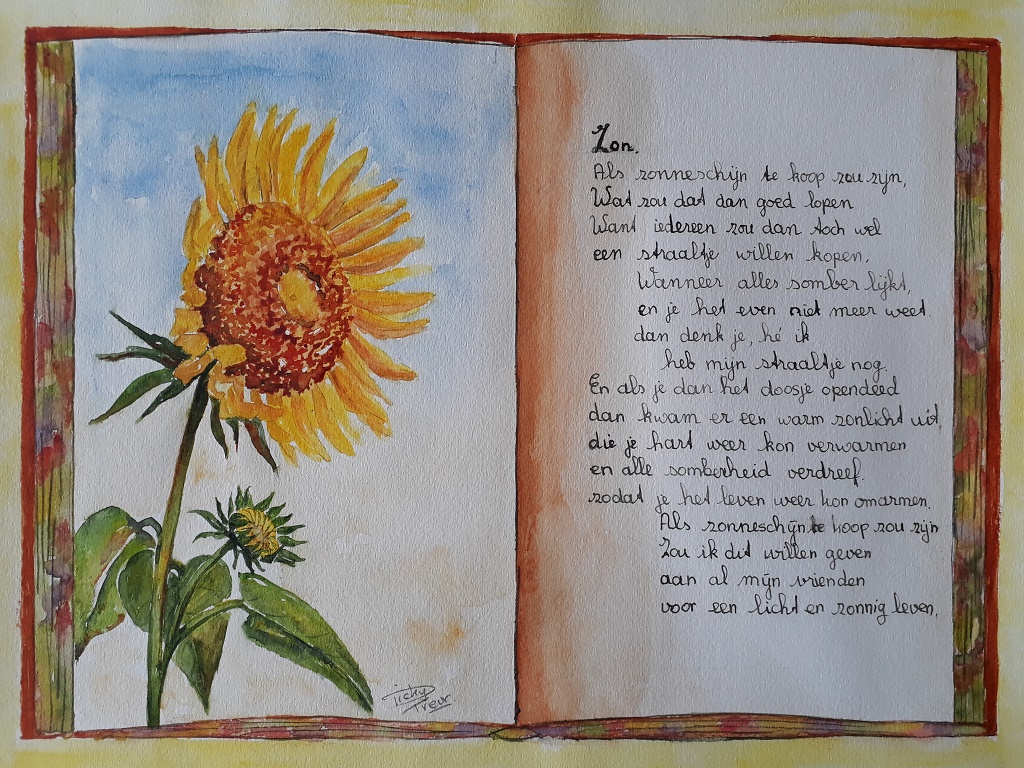 Zon.
Als zonneschijn te koop zou zijn,
Wat zou dat dan goed lopen
Want iedereen zou dan toch wel
een straaltje willen kopen.
Wanneer alles somber lijkt,
en je het even niet meer weet.
dan denk je, hé ik
heb mijn straaltje nog.
En als je dan het doosje opendeed
dan kwam er een warm zonlicht uit,
die je hart weer kon verwarmen
en alle somberheid verdreef.
zodat je het leven weer kon omarmen.
Als zonneschijn te koop zou zijn
Zou ik dit willen geven
aan al mijn vrienden
voor een licht en zonnig leven.